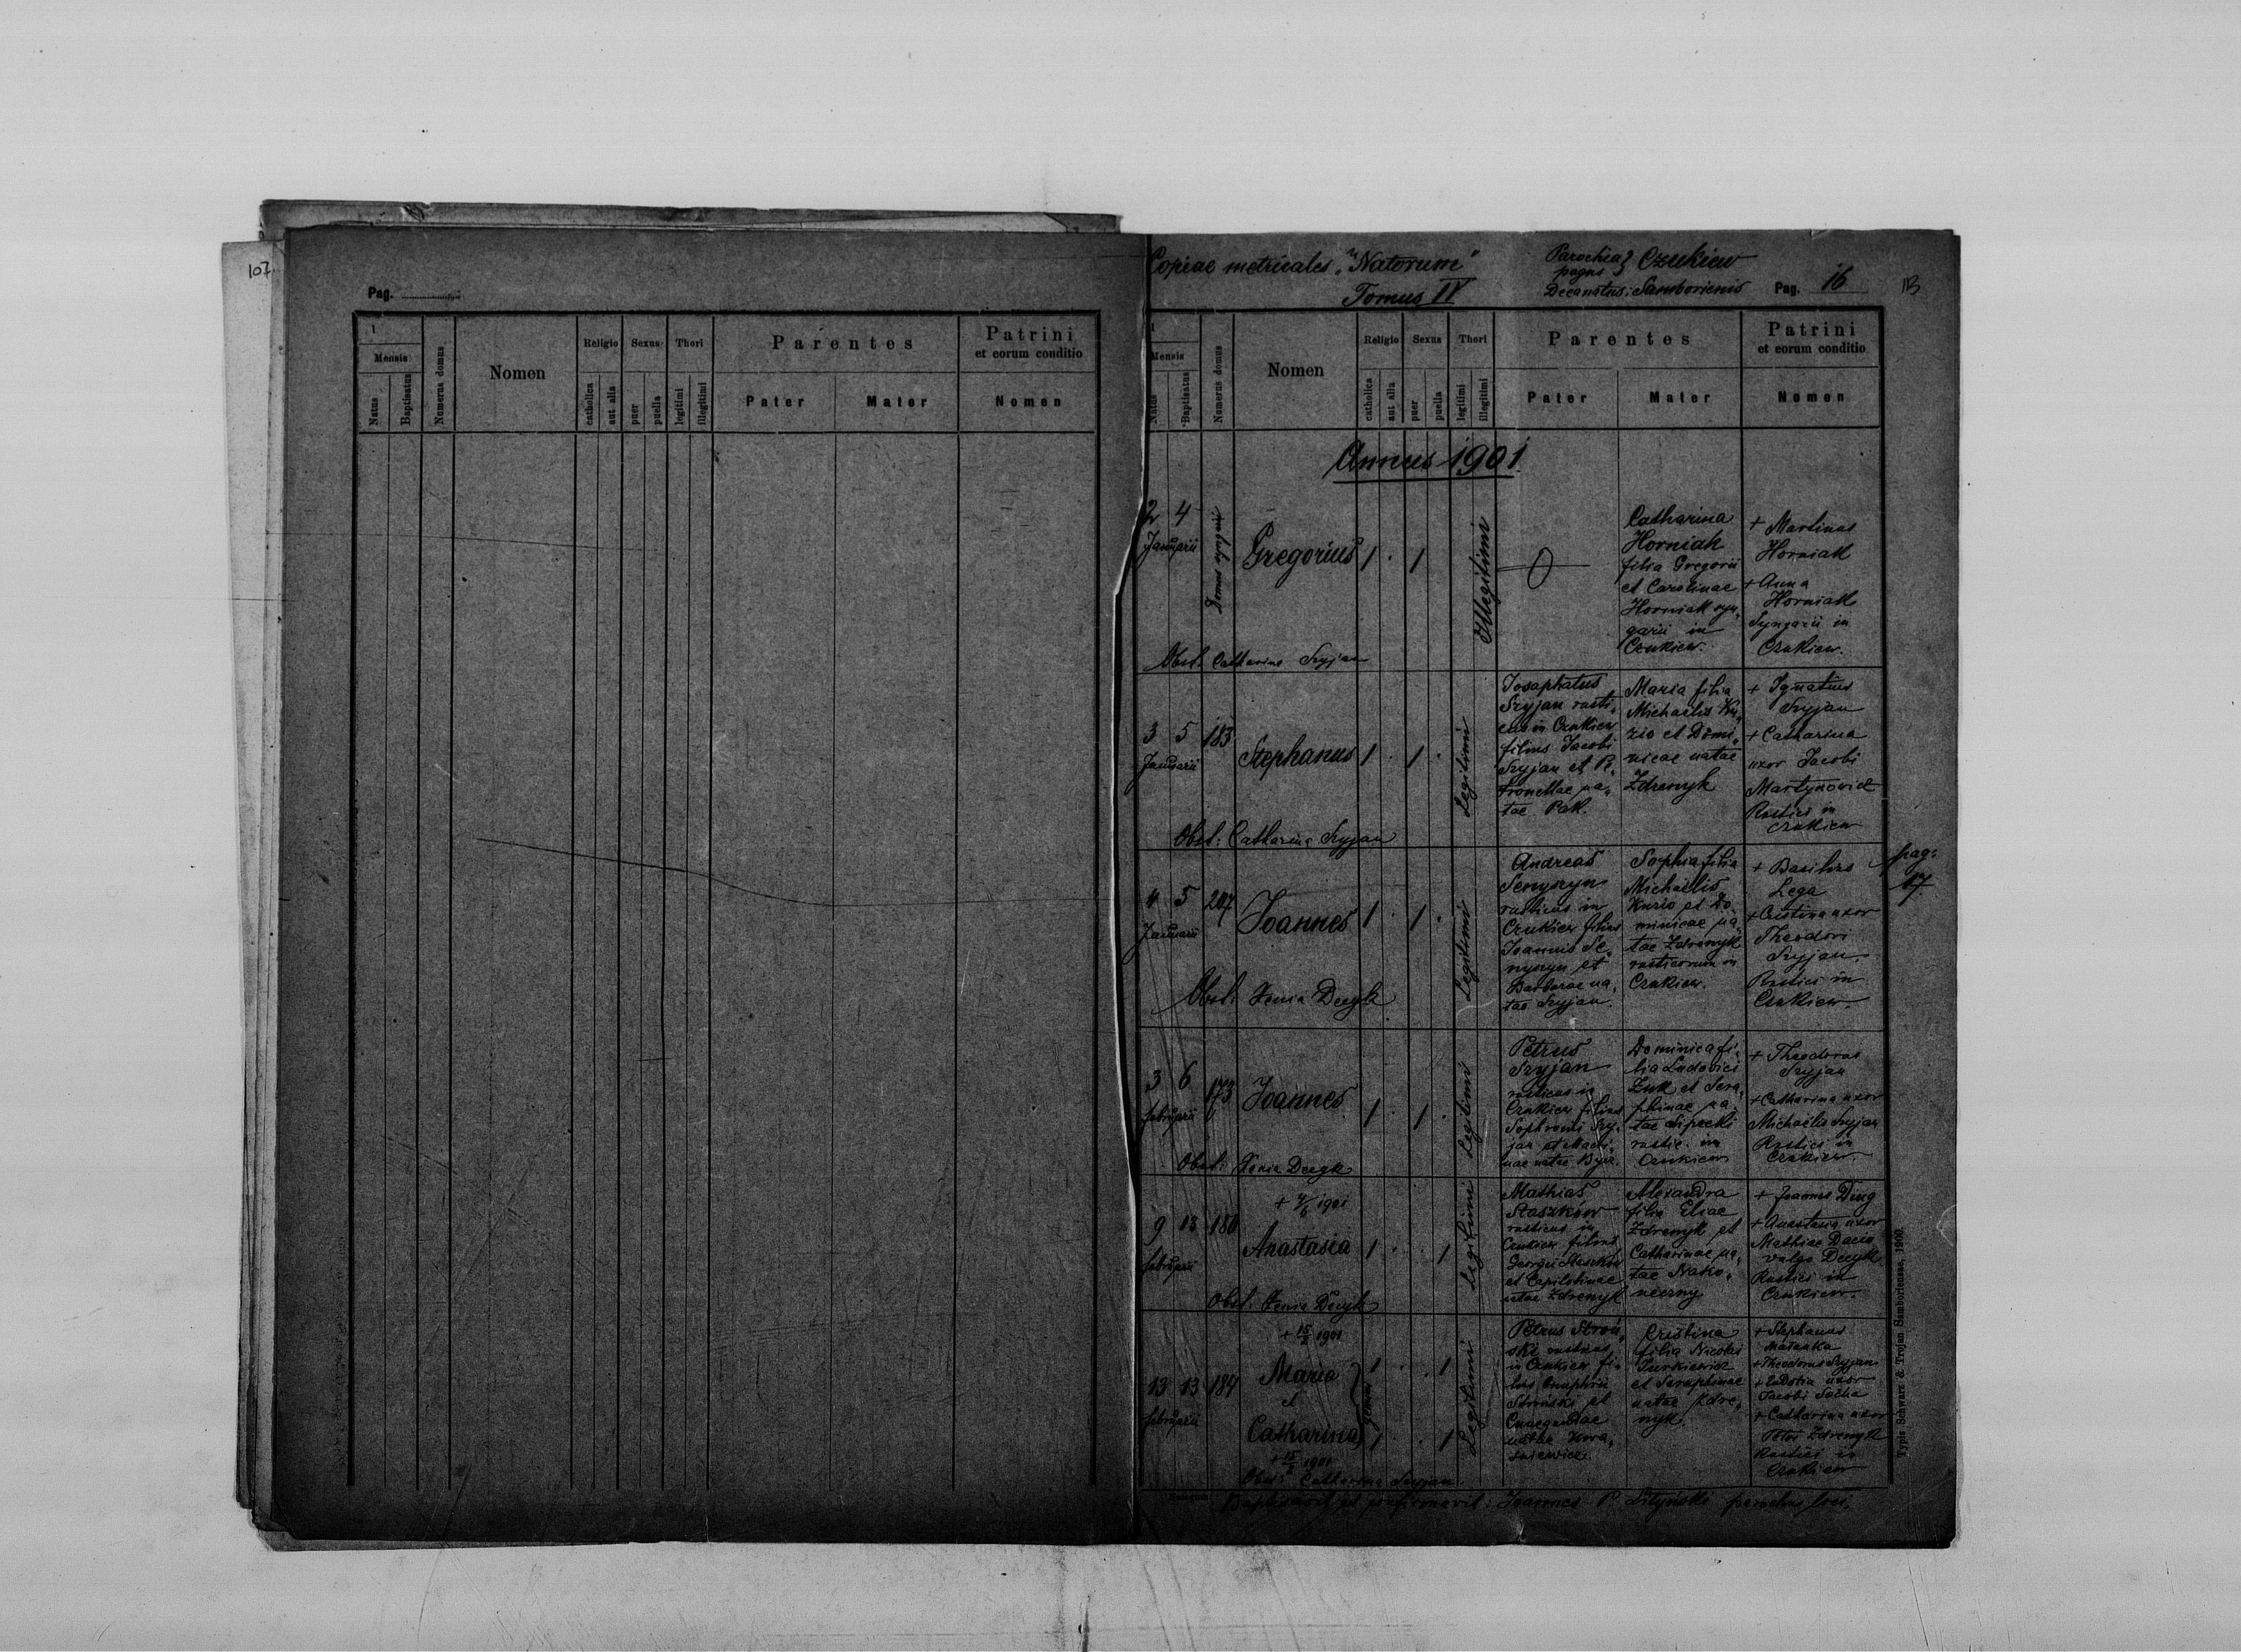 107
Pag.
1
Mensis
Natus
Baptisatus
Numerus domus
Nomen
Religio
catholica
aut alia
Sexus
puer
puella
Thori
legitimi
illegitimi
Parentes
Pater
Mater
Patrini
et eorum conditio
Nomen
Copiae metricales "Natorum"
Tomus IV
Parochia } Czukiew
pagus }
Decanatus: Samboriensis
Pag. 16
113
1
Mensis
Natus
Baptisatus
Numerus domus
Nomen
Religio
catholica
aut alia
Sexus
puer
puella
Thori
legitimi
illegitimi
Parentes
Pater
Mater
Patrini
et eorum conditio
Nomen
Annus 1901
2 4
Januarii
Domus
Gregorius
1 . 1
Illegitimi
0
Catharina
Horniak
filia Gregorii
et Carolinae
Horniak syn,
garii in
Czukiew.
+ Martinus
Horniak
+ Anna
Horniak
Syngarii in
Czukiew.
Obst. Catharina Szyjan
3 5 183
Januarii
Stephanus
1 . 1 .
Legitimi
Josaphatus
Szyjan rusti,
cus in Czukiew
filius Jacobi
Szyjan et Pe,
tronellae na,
tae Pak.
Maria filia
Michaelis Ku,
rio et Domi,
nicae natae
Zdrenyk
+ Ignatius
Szyjan
+ Catharina
uxor Jacobi
Martynowicz
Rustici in
Czukiew
Obst: Catharina Szyjan
pag:
17.
4 5 207
Januarii
Joannes
1 . 1 .
Legitimi
Andreas
Senyszyn
rusticus in
Czukiew filius
Joannis Se,
nyszyn et
Barbarae na,
tae Szyjan.
Sophia filia
Michaelis
Kurio et Do,
minicae na,
tae Zdrenyk
rusticorum in
Czukiew.
+ Basilius
Lega
+ Cristina uxor
Theodori
Szyjan.
Rustici in
Czukiew.
Obst: Xenia Decyk
3 6 173
februarii
Joannes
1 . 1 .
Legitimi
Petrus
Szyjan
rusticus in
Czukiew filius
Sophronii Szy,
jan et Mari,
nae natae
Dominica fi,
lia Ludovici
Zuk et Sera,
phinae na,
tae Lipecki
rustic. in
Czukiew
+ Theodorus
Szyjan
+ Catharina uxor
Michaelis Szyjan
Rustici in
Czukiew.
Obst: Xenia Decyk
9 13 180
februarii
+ 1901
Anastasia
1 . . 1
Legitimi
Mathias
Staszkow
rusticus in
Czukiew filius
Georgii Staszkow
et Capitolinae
natae Zdrenyk
Alexandra
filia Eliae
Zdrenyk et
Catharinae na,
tae Nako,
neczny
+ Joannes
+ Anastasia uxor
Mathiae
vulgo Decyk
Rustici in
Czukiew.
Obst. Xenia Decyk
13 13 184
februarii
+ 15/2 1901
Maria
et
Catharina
gemini
+ 15/2 1901
1 . . 1
1 . . 1
Legitimi
Petrus Stroń,
ski rusticus
in Czukiew fi,
lius Onuphrii
Stroński et
Cunegundae
natae
Cristina
filia Nicolai
Turkiewicz
et Seraphinae
natae Zdre,
nyk.
+ Stephanus
+ Theodorus Szyjan
+ Eudocia uxor
Jacobi Socha
+ Catharina uxor
Petri Zdrenyk
Rustici in
Czukiew
Obst: Catharina Szyjan.
Baptisavit et confirmavit: Joannes P. Lityński parochus loci.
Typis Schwarz & Trojan Samboriensse, 1900.